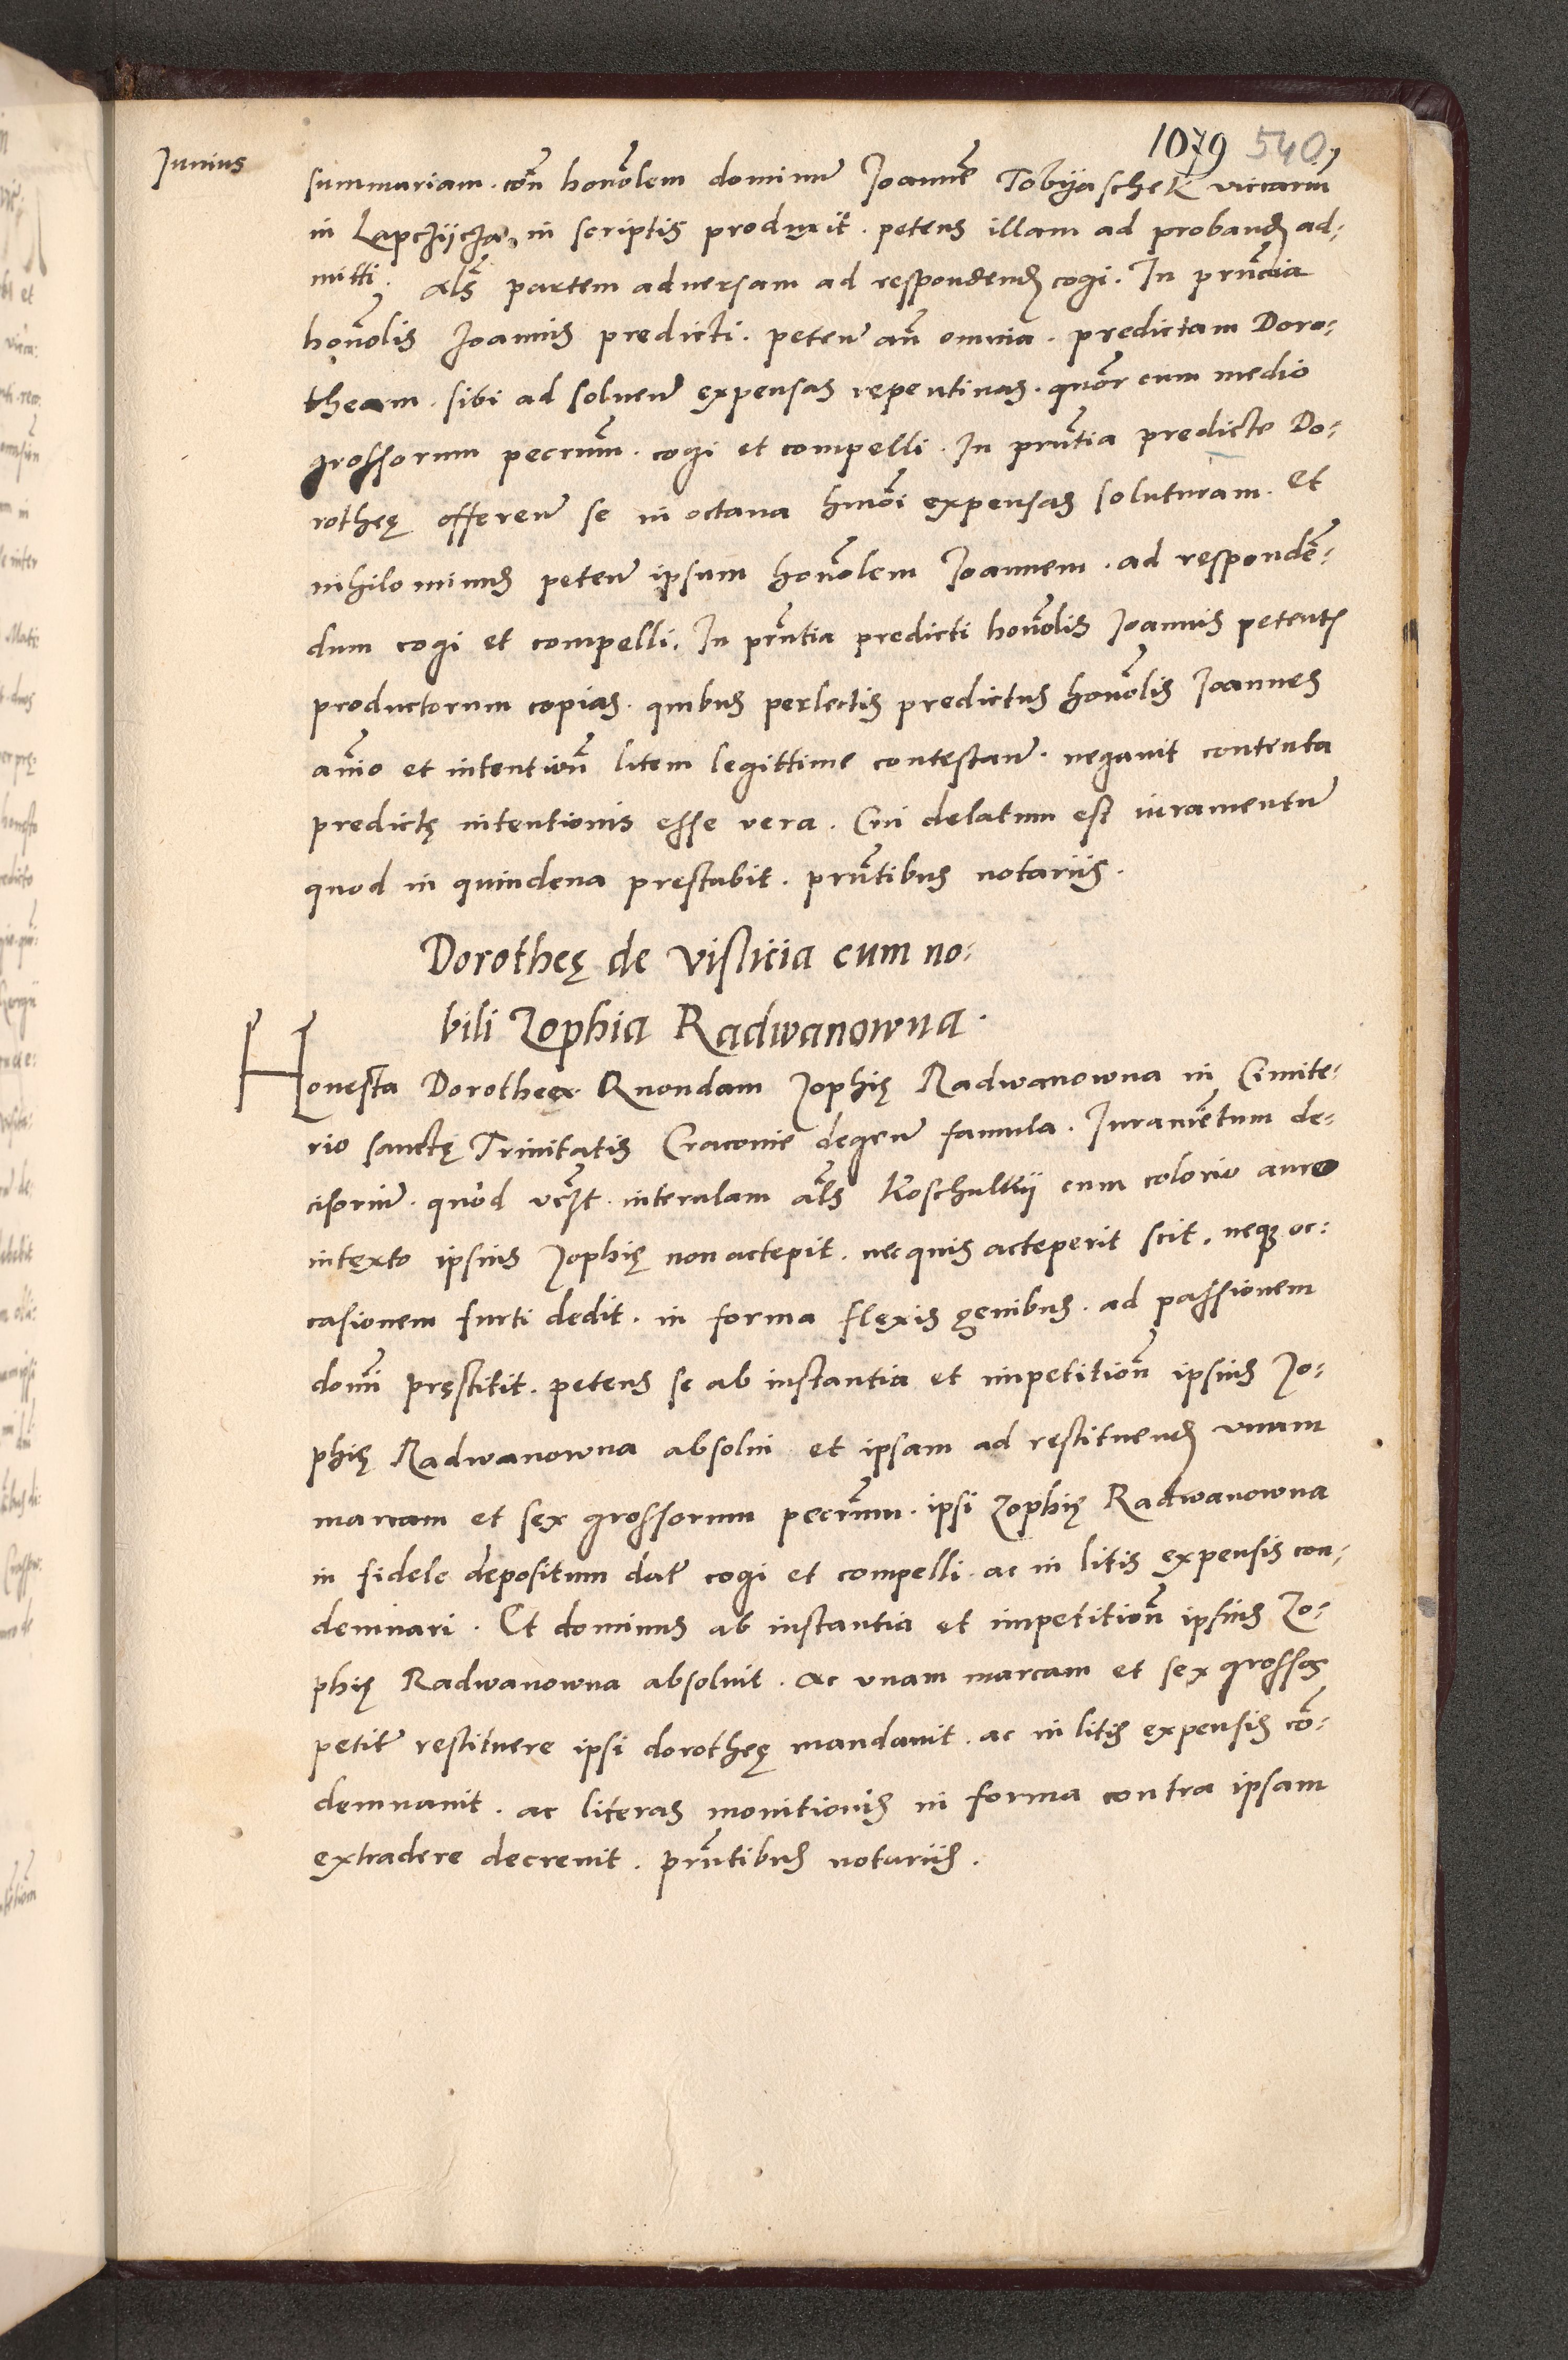 1079 540
Junius
summariam. con̄ honōlem dominū Joannē Tobyaschek vicariū
in Lapczijcza, in scriptis produxit. petens illam ad probandꝫ ad-
mitti. Al̄s partem adversam ad respondendꝫ cogi. In prn̄cia
honōlis Joannis predicti. peteñ an̄ omnia. predictam Doro-
theam. sibi ad solueñ expensas repentinas. quōr cum medio
grossorum pecun̄. cogi et compelli. In prn̄tia predicte Do-
rotheę offereñ se in octava hmōi expensas soluturam. et
nihilominus peteñ ipsum honōlem Joannem. ad respondē-
dum cogi et compelli. In prn̄tia predicti honōlis Joannis petentꝭ
productorum copias. quibus perlectis predictus honōlis Joannes
an̄io et intention̄ litem legittime contestañ. negavit contenta
predictę intentionis esse vera. Cui delatum est iuramentū
quod in quindena prestabit. prn̄tibus notariis.
Dorotheę de Visliciia cum no-
bili Zophia Radwanowna.
Honesta Dorothea Quondam Zophię Radwanowna in Cimite-
rio sanctę Trinitatis Cracovie degeñ famula. Juramētum de-
cisoriū. quod interulam al̄s Koschulkij cum colorio aureo
intexto ipsius Zophię non accepit. nec quis acceperit scit. neqꝫ oc-
casionem furti dedit. in forma flexis genibus. ad passionem
domī pręstitit. petens se ab instantia et impetition̄ ipsius Zo-
phię Radwanowna absolvi et ipsam ad restituendꝫ unam
marcam et sex grossorum pecun̄. ipsi Zophię Radwanowna
in fidele depositum datꝭ cogi et compelli. ac in litis expensis con-
demnari. Et dominus ab instantia et impetition̄ ipsius Zo-
phię Radwanowna absolvit. ac unam marcam et sex grossos
petitꝭ restituere ipsi dorotheę mandavit. ac in litis expensis cō-
demnavit. ac literas monitionis in forma contra ipsam
extradere decrevit. prn̄tibus notariis.